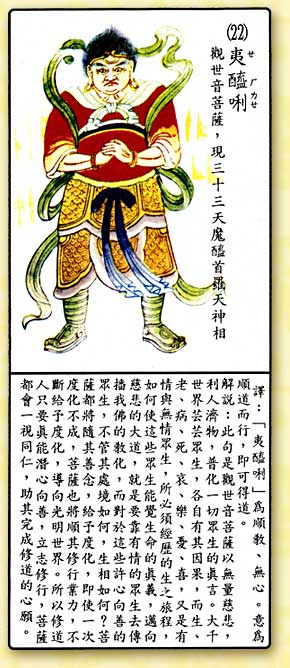 (22)夷醯唎
觀世音菩薩，現三十三天魔醯首羅天神相
譯：「夷醯唎」為順教、無心。意為
順道而行，即可得道。
解說：此句是觀世音菩薩以無量慈悲，
利人濟物，普化一切眾生的真言。大千
世界芸芸眾生，各自有其因果，而生、
老、病、死、哀、樂、憂、喜，又是有
情與無情眾生，所必須經歷的生之旅程，
如何使這些眾生能覺生命的真義，邁向
慈悲的大道，就是要靠有情的眾生去傳
播我佛的教化，而對於這些許心向善的
眾生，不管其處境如何，生相如何？菩
薩都將隨其善念，給予度化，即使一次
度化不成，菩薩也將順其修行業力，不
斷給予度化，導向光明世界。所以修道
人只要真能潛心向善，立志修行，菩薩
都會一視同仁，助其完成修道的心願。